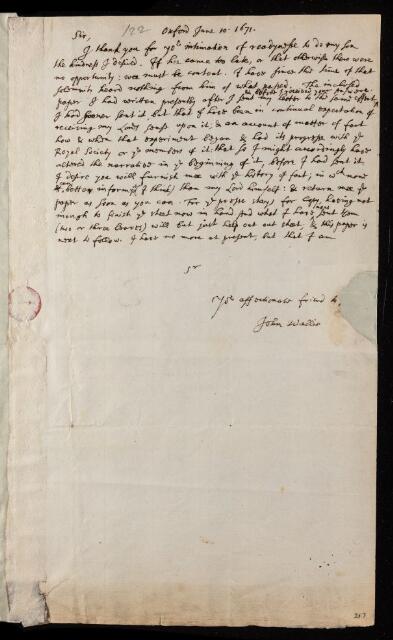 122
Oxford June 10. 1671.
Sir,
I thank you for yor intimation of readynesse to do my son
the kindness I desired. If his came too late, or that otherwise there were
no opportunity: wee must be content. I have since the time of that
solemnity heard nothing from him of what passed. The inclosed
paper I had written presently after I sent my letter to the same effect,
& before I received your
I had sooner sent it but that I have been in continual expectation of
receiving my Lords sense upon it, & an account of matter of fact
how & when that experiment began & had its progress with ye
Royal Society or ye members of it: that so I might accordingly have
altered the narrative in ye beginning of it, before I had sent it.
I desire you will furnish mee with ye history of fact; in wch
better inform I think) than my Lord himself: & return mee ye
paper as soon as you can. For ye presse stays for Copy, having not
enough to finish ye sheet now in hand And what I have sent
(two or three leaves) will but just help out that sheet, & this paper is
next to follow. I have no more at present, but that I am
Sr
Yor affectionate friend
John Wallis
257